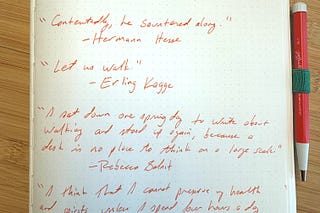 "Contentedly, he sauntered along."
- Hermann Hesse
"Let us walk"
- Erling Kagge
"I sat down one spring day to write about
walking and stood up again, because a
desk is no place to think on a large scale."
- Rebecca Solnit
"I think that I cannot preserve my health
and spirits, unless I spend four hours a day